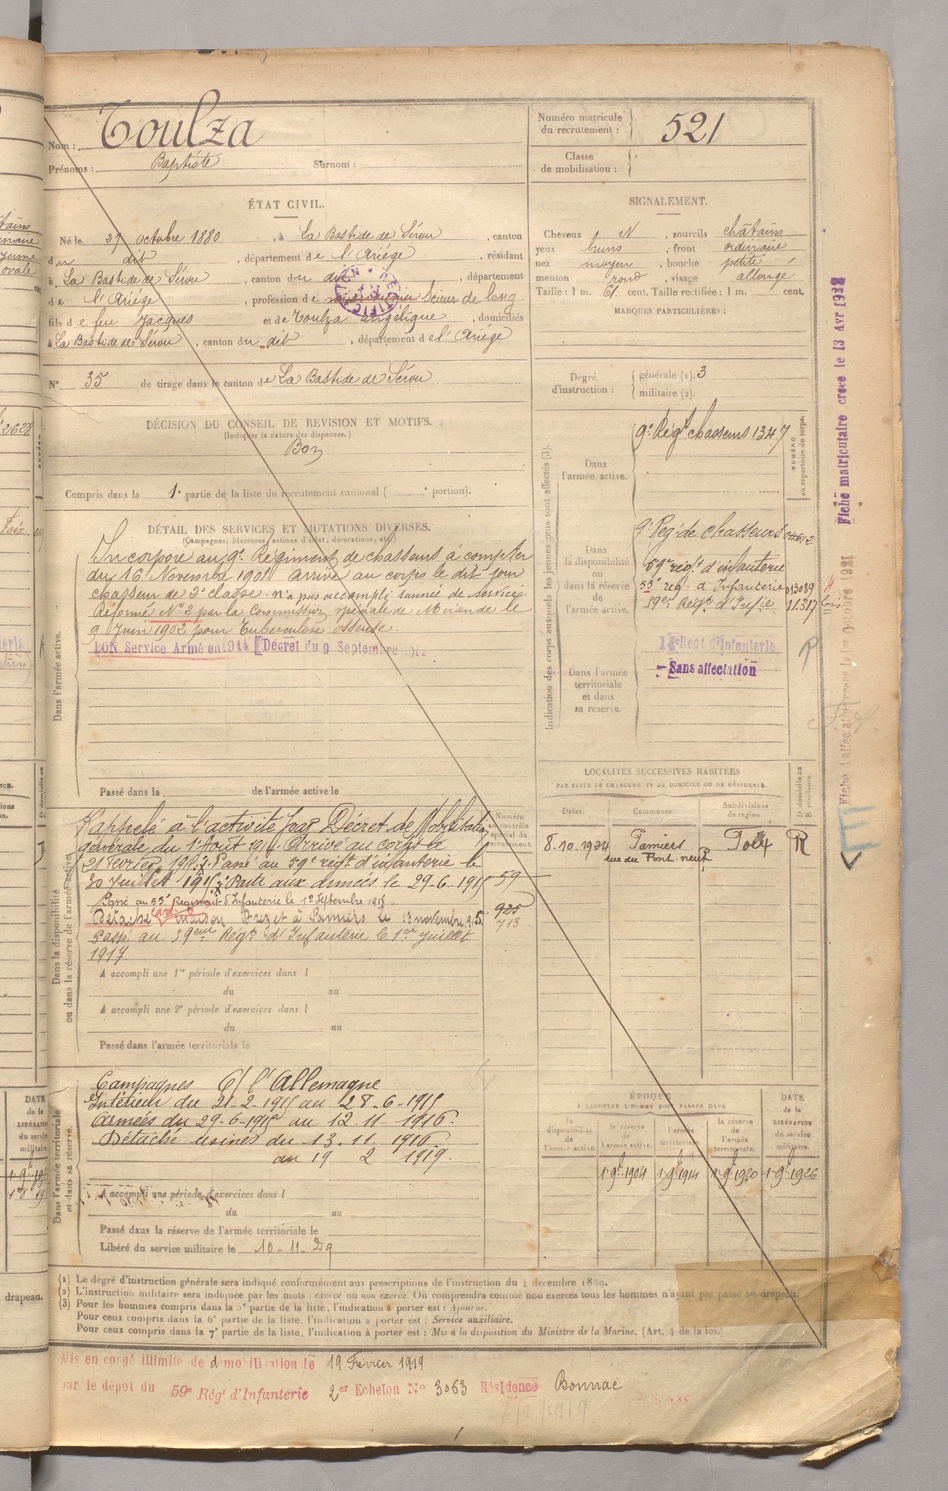 Nom : Toulza
Prénoms : Baptiste Surnom :
Numéro matricule du recrutement : 521
Classe de mobilisation :
ÉTAT CIVIL.
Né le 27 octobre 1880, à La Bastide de Sérou, canton
du dit, département de l'Ariège, résidant
à La Bastide de Sérou, canton du dit, département
de l'Ariège, profession de Scieur de long
fils de feu Jacques et de Toulza Angélique, domiciliés
à La Bastide de Sérou, canton du dit, département de l'Ariège
N° 35 de tirage dans le canton de La Bastide de Sérou
SIGNALEMENT.
Cheveux N, sourcils châtains
yeux bruns, front ordinaire
nez moyen, bouche petite
menton rond, visage allongé
Taille : 1 m. 61 cent. Taille rectifiée : 1 m. cent.
MARQUES PARTICULIÈRES :
Degré d'instruction : générale (1). 3
militaire (2).
DÉCISION DU CONSEIL DE REVISION ET MOTIFS.
(Indiquer la nature des dispenses.)
Bon
Compris dans la 1e partie de la liste du recrutement cantonal ( e portion).
DÉTAIL DES SERVICES ET MUTATIONS DIVERSES.
(Campagnes, blessures, actions d'éclat, décorations, etc.)
Dans l'armée active.
Incorporé au 9e Régiment de chasseurs à compter
du 16 Novembre 1901 arrivé au corps le dit jour
chasseur de 2e classe. n'a pas accompli l'année de service
Réformé N° 2 par la Commission spéciale de Mirande le
9 Juin 1902 pour Tuberculose osseuse.
BON Service Armé en 1914 [Décret du 9 Septembre
Passé dans la de l'armée active le
Indication des corps auxquels les jeunes gens sont affectés (3).
NUMÉRO au répertoire du corps.
Dans l'armée active.
9e Régt chasseurs 1347
Dans la disponibilité ou dans la réserve de l'armée active.
9e Reg de chasseurs
59e régt d'infanterie
55e rég. d'Infanterie 013089
59e Régt d'Inf.ie 11.317
Dans l'armée territoriale et dans sa réserve.
Régt d'Infanterie
Sans affectation
Fiche matriculaire créée le 13 Avr 1932
LOCALITÉS SUCCESSIVES HABITÉES
PAR SUITE DE CHANGEMENTS DE DOMICILE OU DE RÉSIDENCE.
Dates. Communes. Subdivisions de région. D domicile ou R résidence.
8-10-1924 Pamiers Foix R
rue du Pont neuf
Dans la disponibilité ou dans la réserve de l'armée active
Numéro au contrôle spécial du recrutement.
Rappelé à l'activité par Décret de Mobilisation
générale du 1er Août 1914 Arrivé au corps le
21 Février 1915. Passé au 59e régt d'infanterie le
30 Juillet 1915. Parti aux armées le 29-6-1915 59
Passé au 55e Régiment d'Infanterie le 1er Septembre 1915
Détaché maison Prezet à Pamiers le 13 novembre 925
713
Passé au 59eme Régt d'Infanterie le 1er Juillet
1917
A accompli une 1re période d'exercices dans l
du au
A accompli une 2e période d'exercices dans l
du au
Passé dans l'armée territoriale le
Dans l'armée territoriale et dans sa réserve.
Campagnes C/ l'Allemagne
Intérieur du 21-2-1915 au 28-6-1915
Armées du 29-6-1915 au 12.11.1916.
Détaché usines du 13.11.1916
au 19 2 1919.
A accompli une période d'exercices dans l
du au
Passé dans la réserve de l'armée territoriale le
Libéré du service militaire le 10-11-29
ÉPOQUE
À LAQUELLE L'HOMME DOIT PASSER DANS
DATE de la LIBÉRATION du service militaire.
la disponibilité de l'armée active. la réserve de l'armée active. l'armée territoriale. la réserve de l'armée territoriale.
1 9bre 1904 1 9bre 1914 1 9bre 1920 1 9bre 1926
(1) Le degré d'instruction générale sera indiqué conformément aux prescriptions de l'instruction du 4 décembre 1889.
(2) L'instruction militaire sera indiquée par les mots : exercé ou non exercé. On comprendra comme non exercés tous les hommes n'ayant pas passé au drapeau.
(3) Pour les hommes compris dans la 5e partie de la liste, l'indication à porter est : Ajourné.
Pour ceux compris dans la 6e partie de la liste, l'indication à porter est : Service auxiliaire.
Pour ceux compris dans la 7e partie de la liste, l'indication à porter est : Mis à la disposition du Ministre de la Marine. (Art. 4 de la loi.)
Mis en congé illimité de démobilisation le 19 Février 1919
par le dépôt du 59e Régt d'Infanterie 2er Echelon N° 3063 Résidence Bonnac